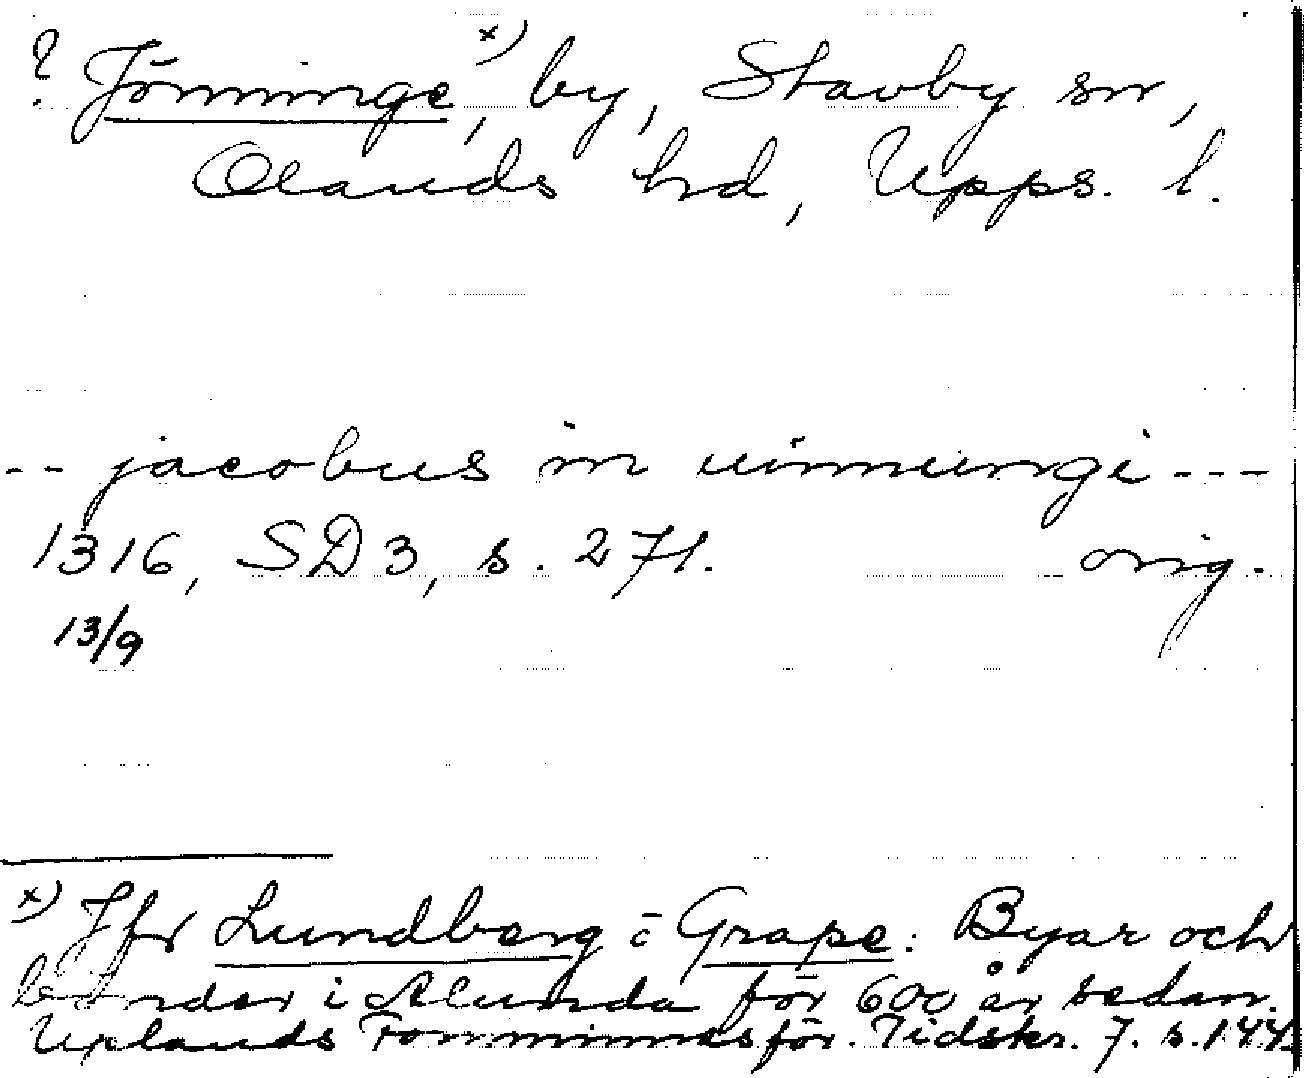 ? Jönninge x), by, Stavby sn,
Olands hd, Upps. l.
-- jacobus in uinnungi ---
1316, SD 3, s. 271. orig.
13/9
x) Jfr Lundberg o Grape: Byar och
bönder i Alunda för 600 år sedan.
Uplands Fornminnesför. Tidskr. 7. s. 144.